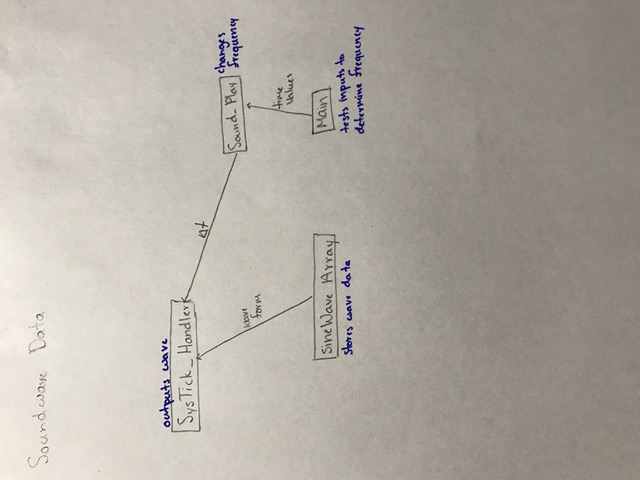 Soundwave Data
outputs wave
SysTick_Handler
Δt
Sound_Play
changes
frequency
wave
form
time
values
SineWave Array
stores wave data
Main
tests inputs to
determine frequency